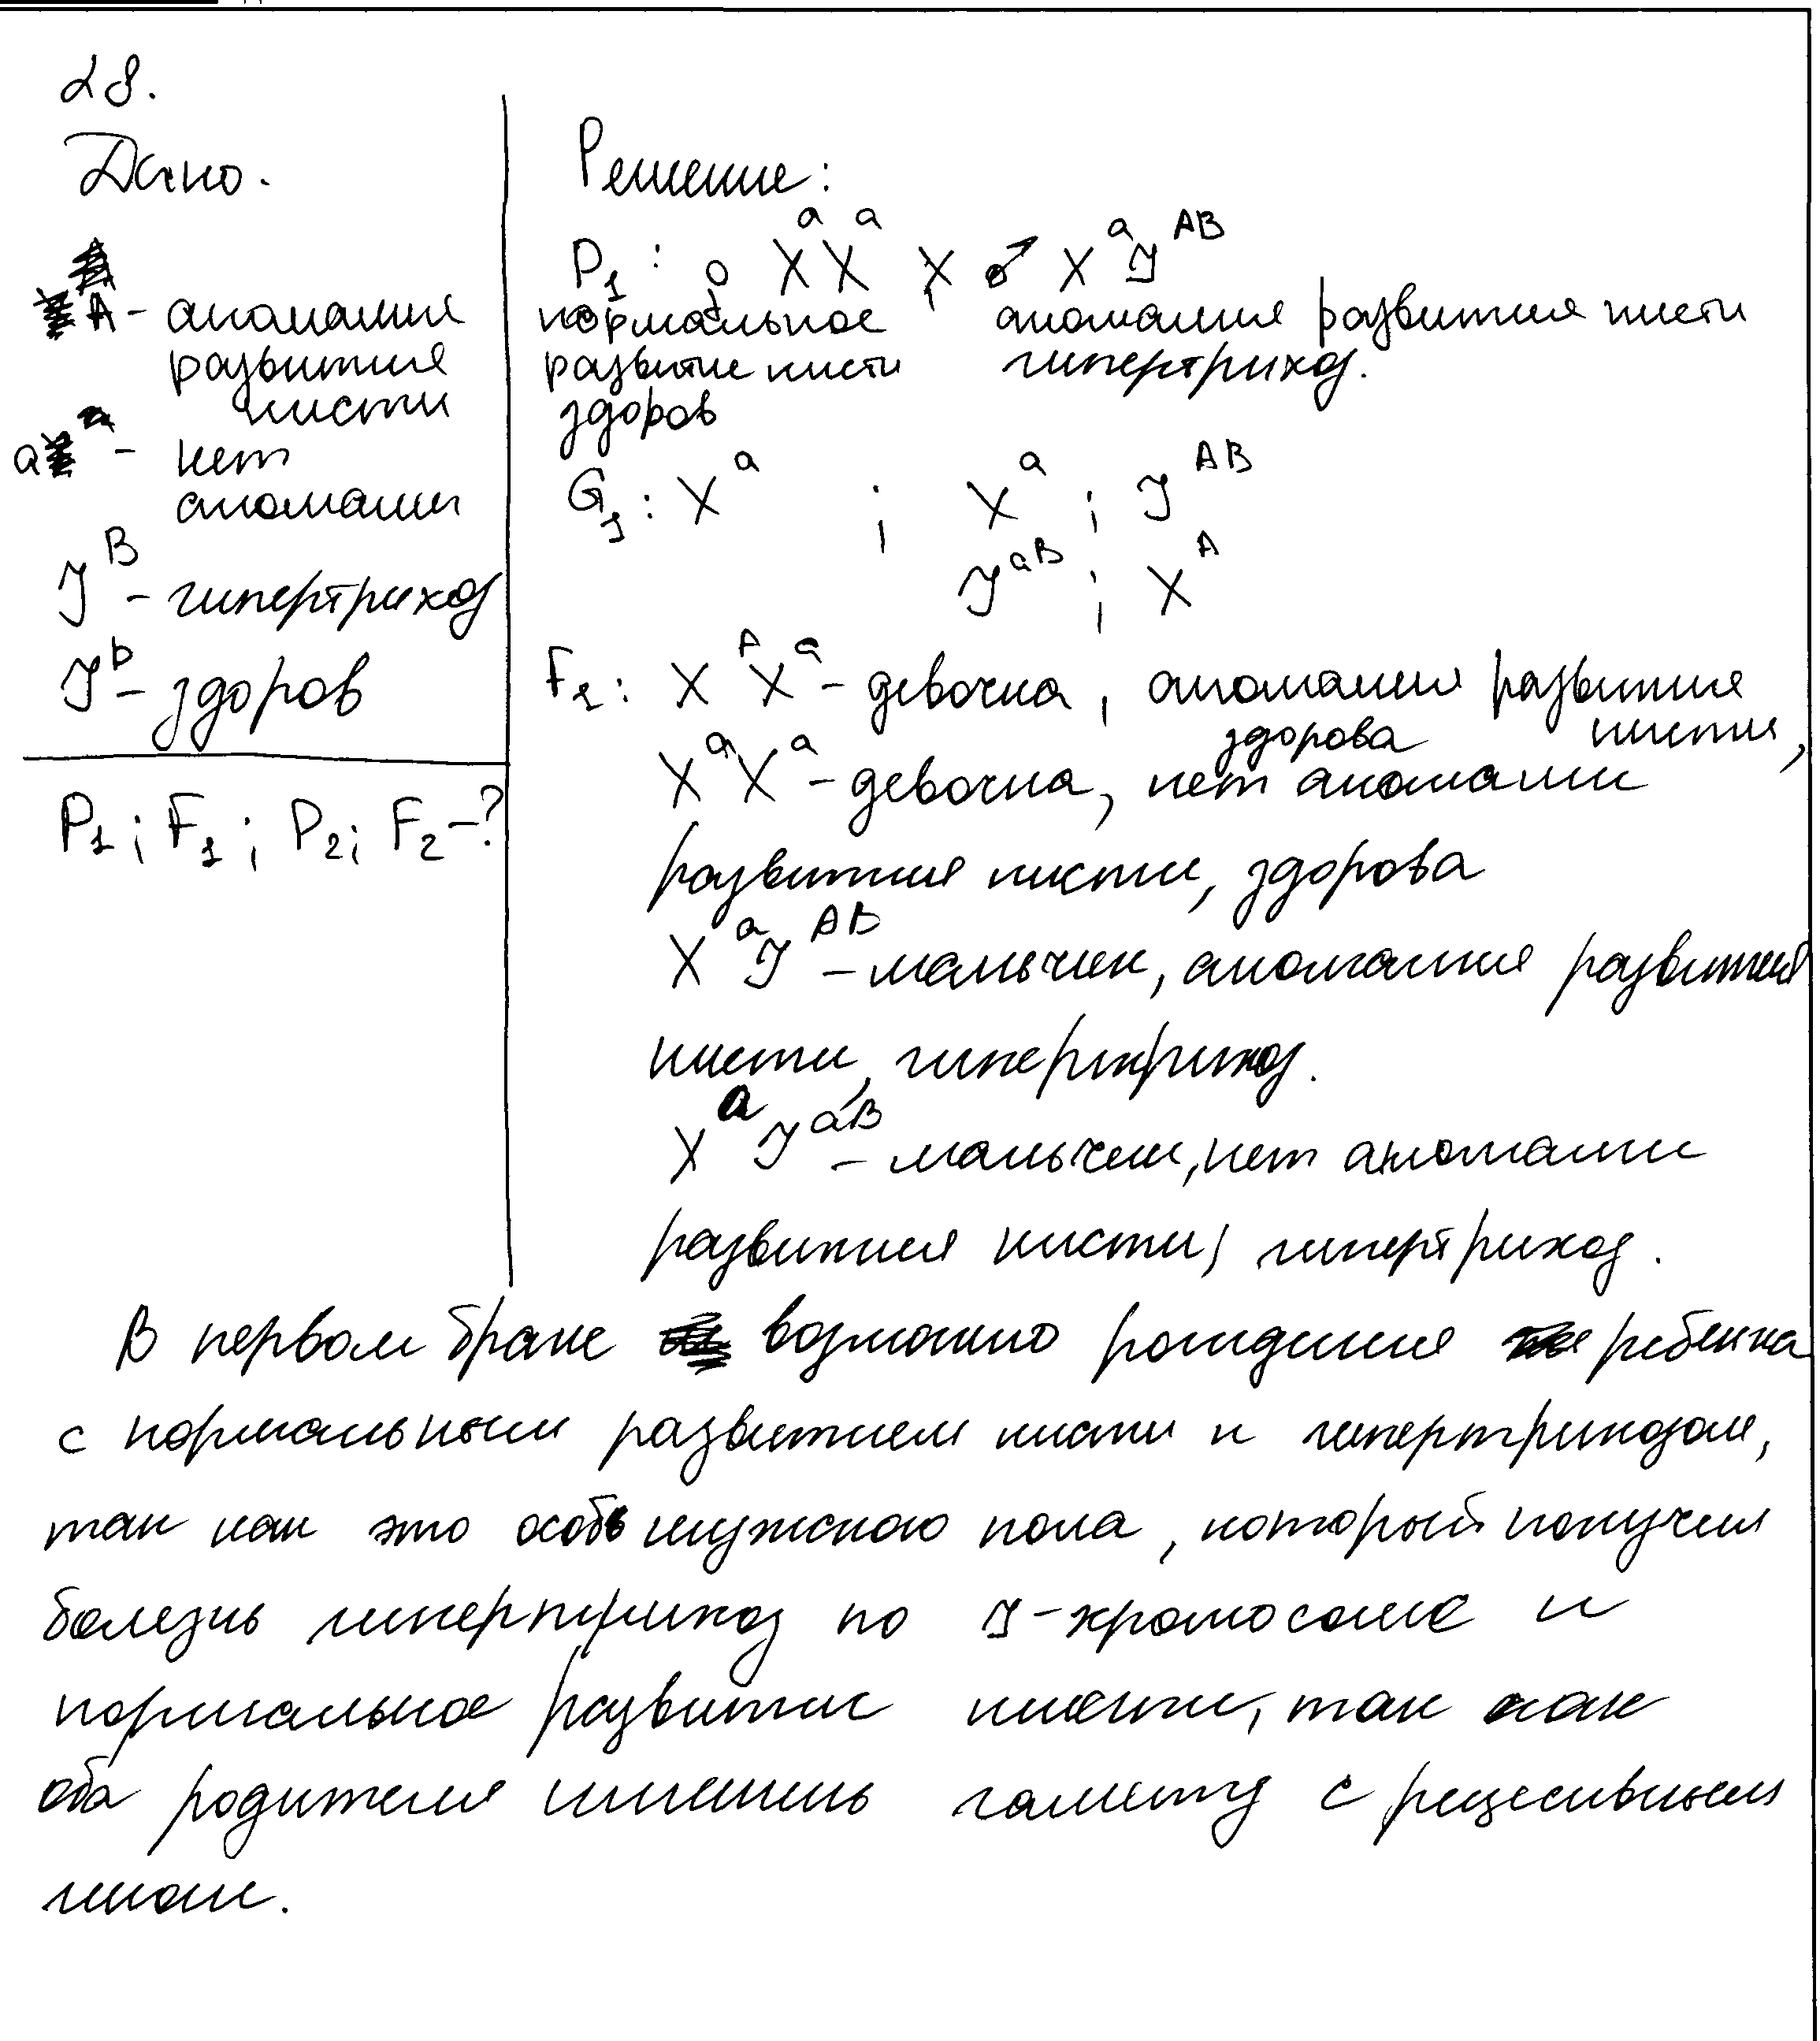 28.
Дано.
A - аномалия
развития
кисти
a - нет
аномалии
Y^B - гипертрихоз
Y^b - здоров
P1; F1; P2; F2 - ?
Решение:
P1: ♀ X^a X^a X ♂ X^a Y^AB
нормальное аномалия развития кисти
развитие кисти гипертрихоз.
здоров
G1: X^a ; X^a ; Y^AB
Y^aB ; X^A
F1: X^A X^a - девочка, аномалия развития
кисти, здорова
X^a X^a - девочка, нет аномалии
развития кисти, здорова
X^a Y^AB - мальчик, аномалия развития
кисти, гипертрихоз.
X^a Y^aB - мальчик, нет аномалии
развития кисти, гипертрихоз.
В первом браке возможно рождение ребенка
с нормальным развитием кисти и гипертрихозом,
так как это особь мужского пола, который получил
болезнь гипертрихоз по Y-хромосоме и
нормальное развитие кисти, так как
оба родителя имели гамету с рецесивным
геном.